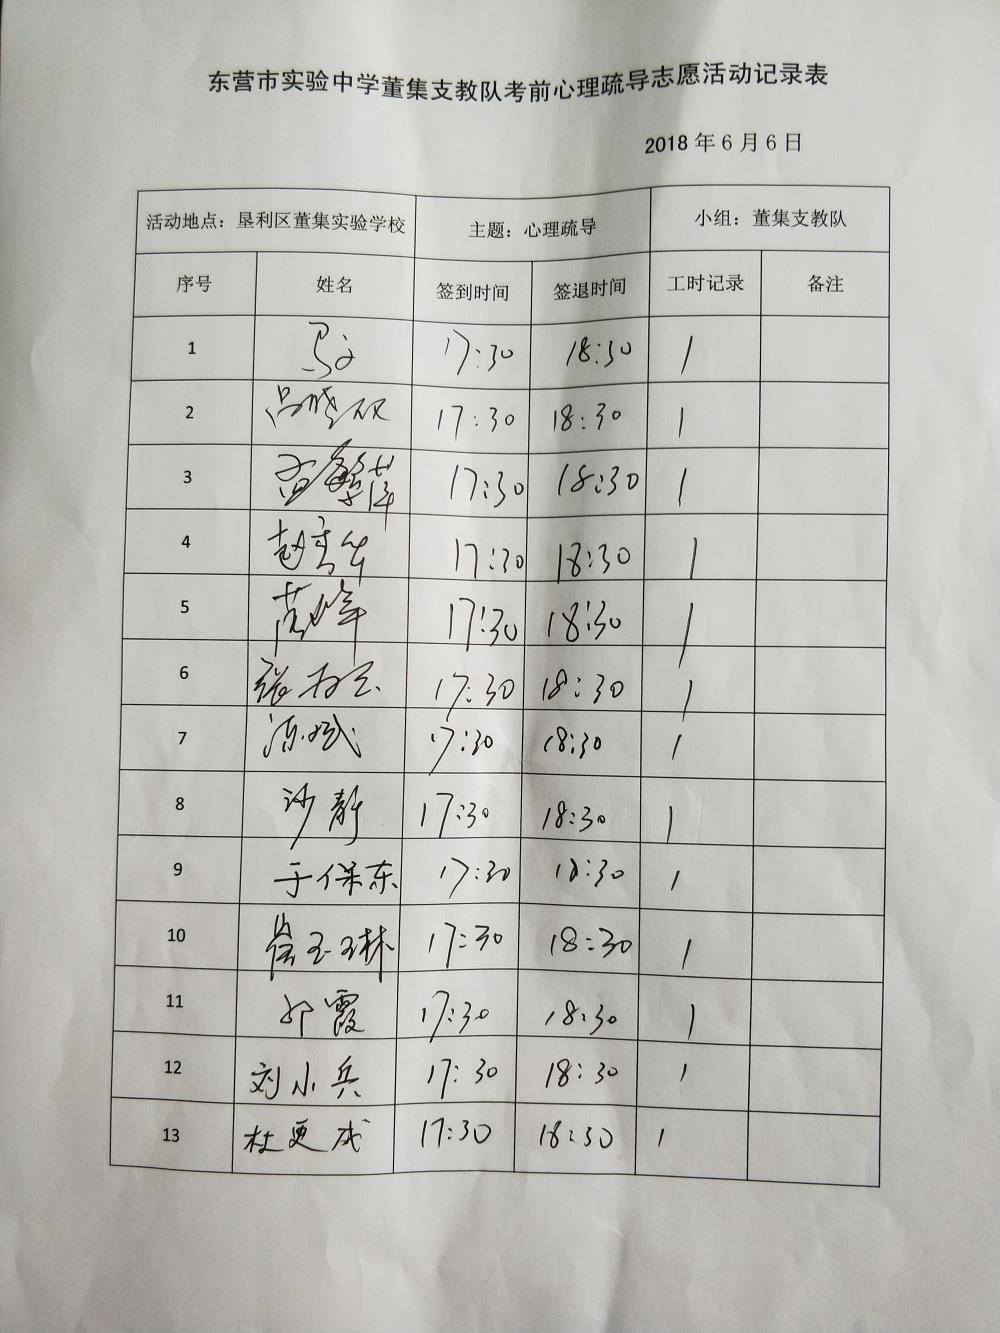 东营市实验中学董集支教队考前心理疏导志愿活动记录表
2018 年 6 月 6 日
活动地点：垦利区董集实验学校 主题：心理疏导 小组：董集支教队
序号 姓名 签到时间 签退时间 工时记录 备注
1 17:30 18:30 1
2 吕晓双 17:30 18:30 1
3 17:30 18:30 1
4 17:30 18:30 1
5 17:30 18:30 1
6 17:30 18:30 1
7 17:30 18:30 1
8 沙静 17:30 18:30 1
9 于保东 17:30 18:30 1
10 崔玉林 17:30 18:30 1
11 霞 17:30 18:30 1
12 刘小兵 17:30 18:30 1
13 杜更成 17:30 18:30 1